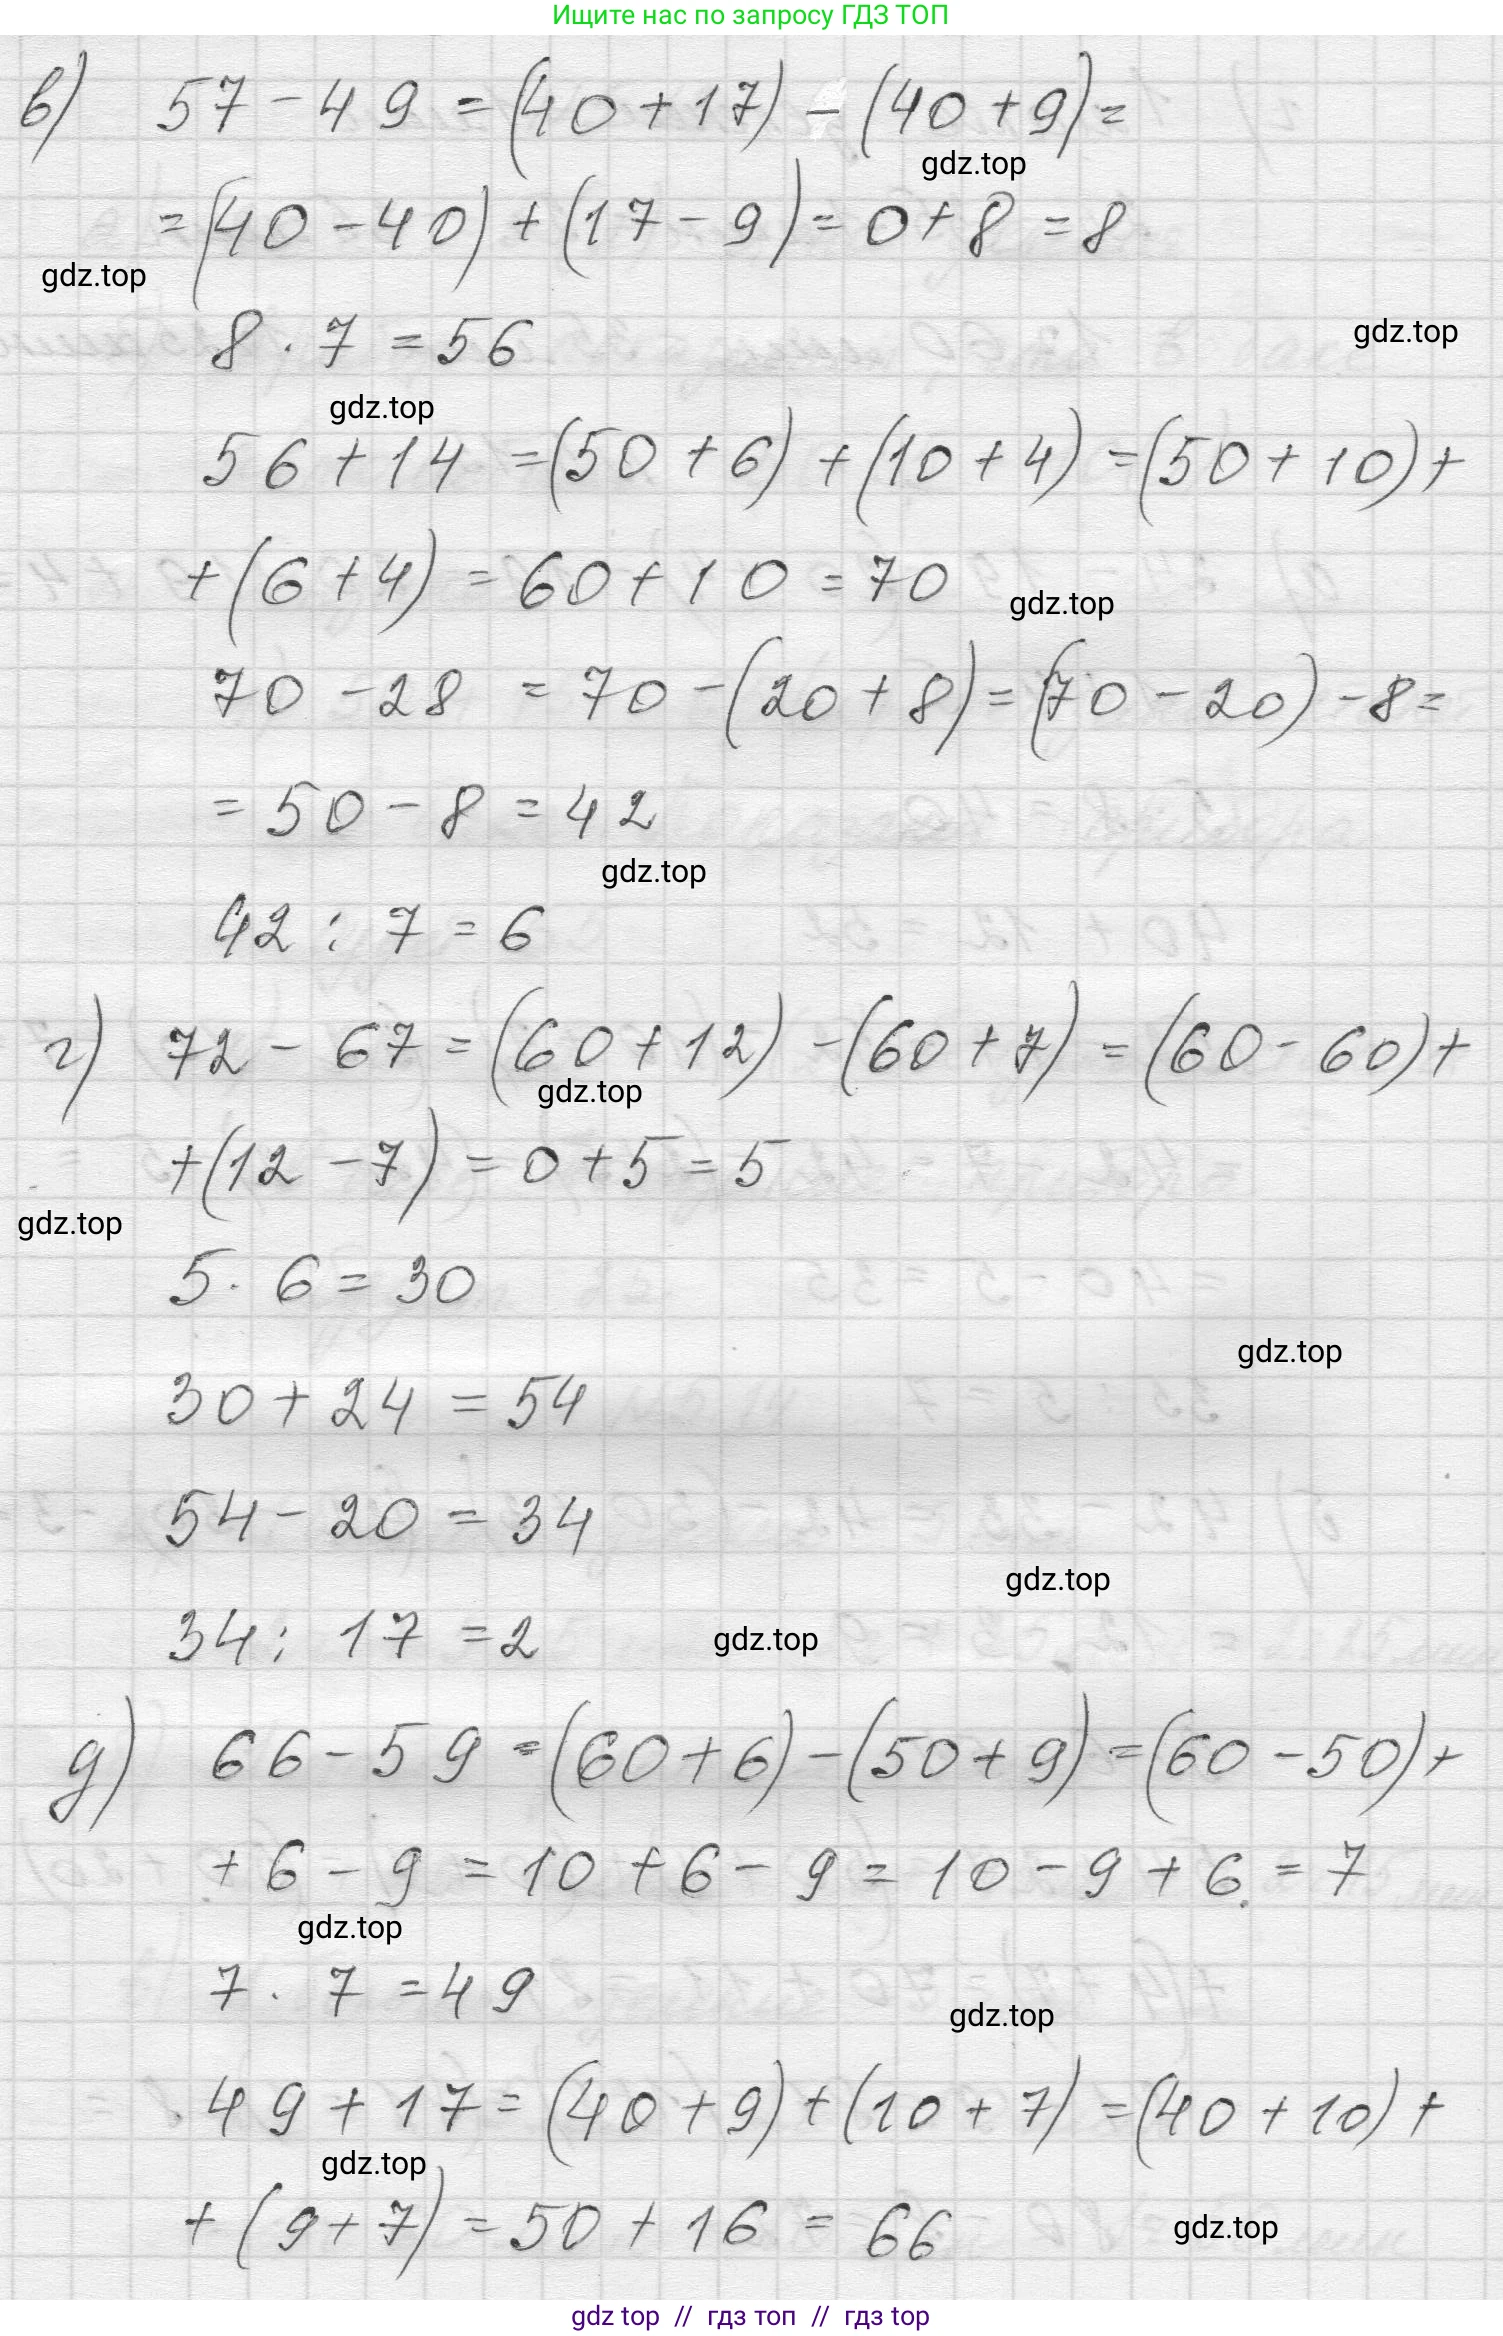 Ищите нас по запросу ГДЗ ТОП
в) 57 - 49 = (40 + 17) - (40 + 9) =
gdz.top
= (40 - 40) + (17 - 9) = 0 + 8 = 8
gdz.top
gdz.top
8 · 7 = 56
gdz.top
56 + 14 = (50 + 6) + (10 + 4) = (50 + 10) +
+ (6 + 4) = 60 + 10 = 70
gdz.top
70 - 28 = 70 - (20 + 8) = (70 - 20) - 8 =
= 50 - 8 = 42
gdz.top
42 : 7 = 6
г) 72 - 67 = (60 + 12) - (60 + 7) = (60 - 60) +
gdz.top
+ (12 - 7) = 0 + 5 = 5
gdz.top
5 · 6 = 30
gdz.top
30 + 24 = 54
54 - 20 = 34
gdz.top
34 : 17 = 2
gdz.top
д) 66 - 59 = (60 + 6) - (50 + 9) = (60 - 50) +
+ 6 - 9 = 10 + 6 - 9 = 10 - 9 + 6 = 7
gdz.top
7 · 7 = 49
gdz.top
49 + 17 = (40 + 9) + (10 + 7) = (40 + 10) +
gdz.top
+ (9 + 7) = 50 + 16 = 66
gdz.top
gdz top // гдз топ // гдз top